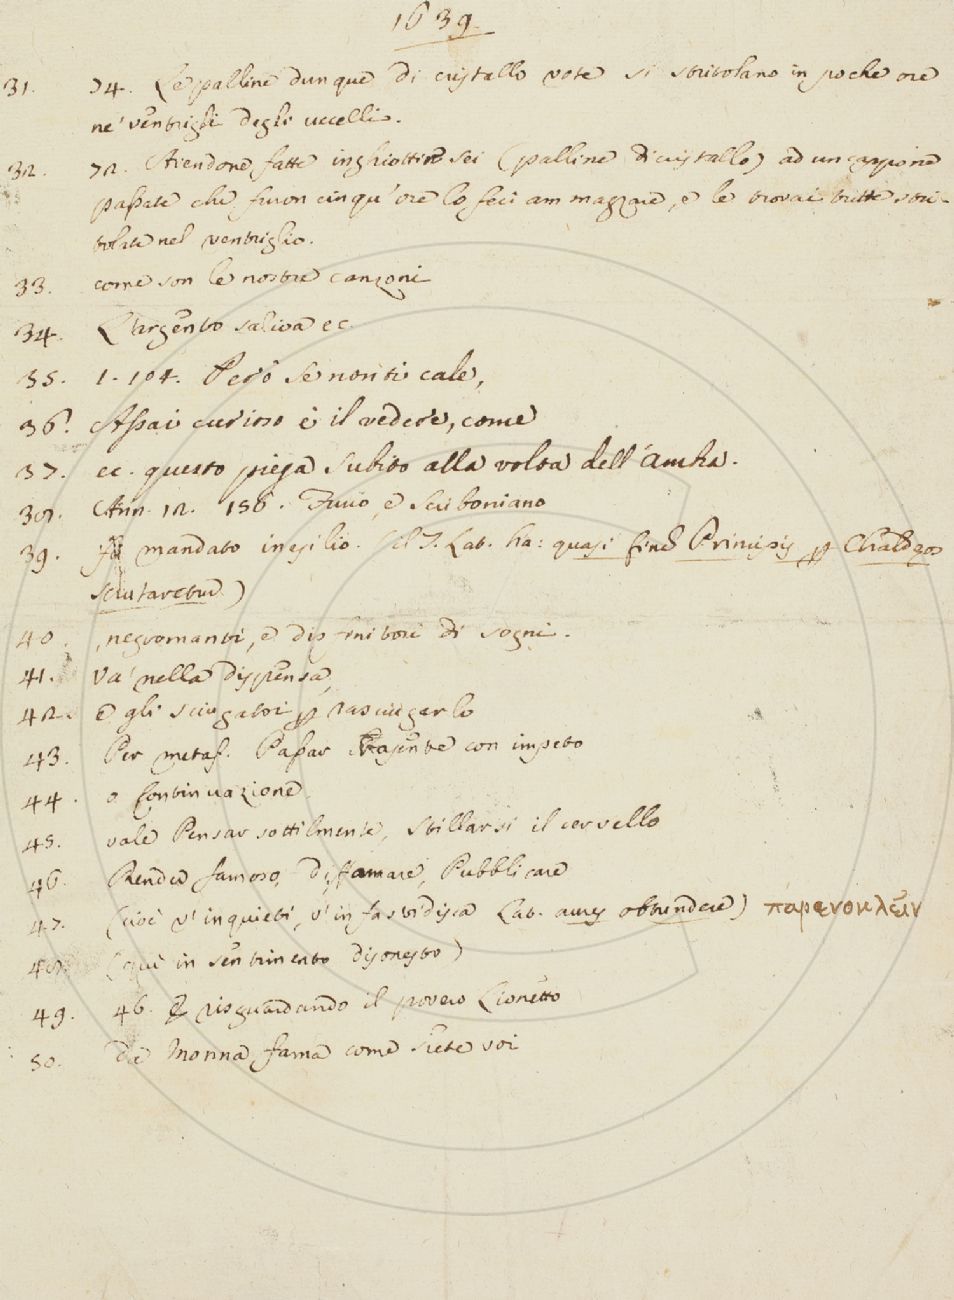 1639.
31. 74. Le palline dunque di cristallo vote si stritolano in poche ore
ne' ventrigli degli uccelli.
32. 72. Avendone fatte inghiottire sei (palline di cristallo) ad un cappone
passate che furon cinqu'ore lo feci ammazzare, e le trovai tutte stri-
tolate nel ventriglio.
33. come son le nostre canzoni
34. L'argento saliva ec.
35. 1. 104. Però se non ti cale,
36. Assai curioso è il vedere, come
37. ec. questo piega subito alla volta dell'ambra.
38. Ann. 12. 156. Furio, e Scriboniano
39. fu mandato in esilio. (il T. Lat. ha: quasi finem Principis per Chaldæos
scrutaretur)
40. , negromanti, e diffinitori di sogni.
41. Va' nella dispensa,
42. e gli sciugatoi per rasciugarlo
43. Per metaf. Passar rasente con impeto
44. o Continuazione
45. vale Pensar sottilmente, Stillarsi il cervello
46. Render famoso, Diffamare, Pubblicare
47. (cioè v'inquieti, v'infastidisca Lat. aures obtundere) παρενοκλεῖν
48. (qui in sentimento disonesto)
49. 46. E risguardando il povero Lionetto
50. da Monna fama come siete voi